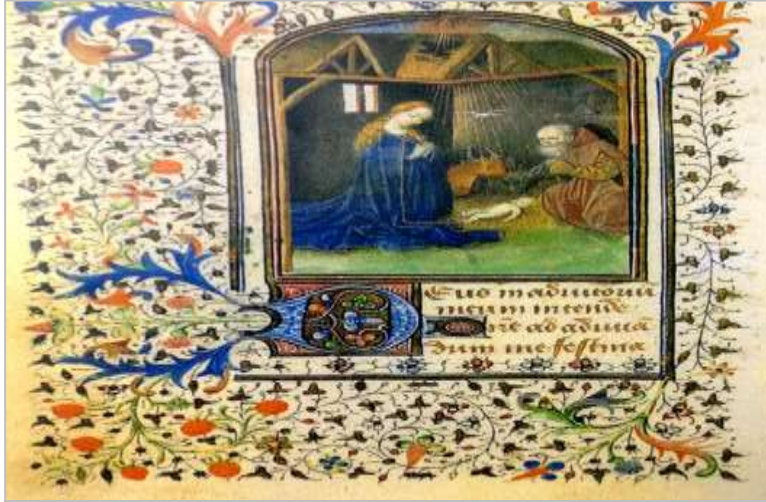 Deus in adiutoriu
meum intende
Dne ad adiuua
dum me festina